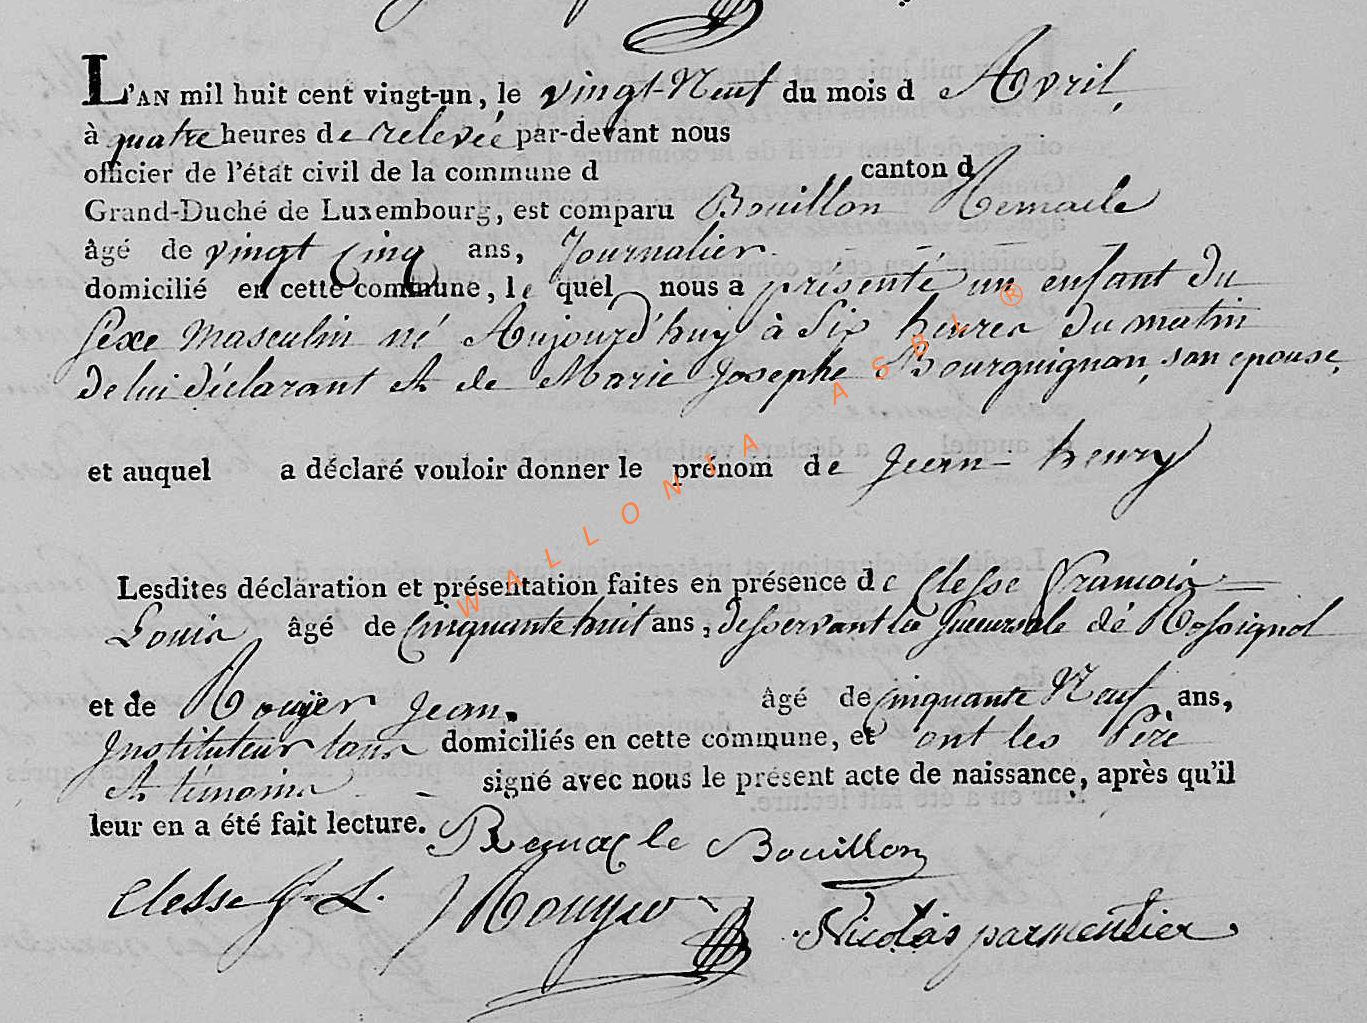 L'AN mil huit cent vingt-un, le vingt-Neuf du mois d Avril,
à quatre heures de relevée par-devant nous
officier de l'état civil de la commune d canton d
Grand-Duché de Luxembourg, est comparu Bouillon Remacle
âgé de vingt Cinq ans, Journalier
domicilié en cette commune, le quel nous a présenté un enfant du
Sexe Masculin né Aujourd'huy à Six heures du matin
de lui déclarant et de Marie Josephe Bourguignon, son epouse,
et auquel a déclaré vouloir donner le prénom de Jean henry
Lesdites déclaration et présentation faites en présence de Clesse François
Louis, âgé de Cinquante huit ans, desservant la Succursale dé Rossignol
et de Rouyër Jean. âgé de Cinquante Neuf ans,
Instituteur tous domiciliés en cette commune, et ont les Père
et témoins signé avec nous le présent acte de naissance, après qu'il
leur en a été fait lecture. Remacle Bouillon
Clesse f. L. J Rouyer Nicolas parmentier
WALLONIA ASBL ®